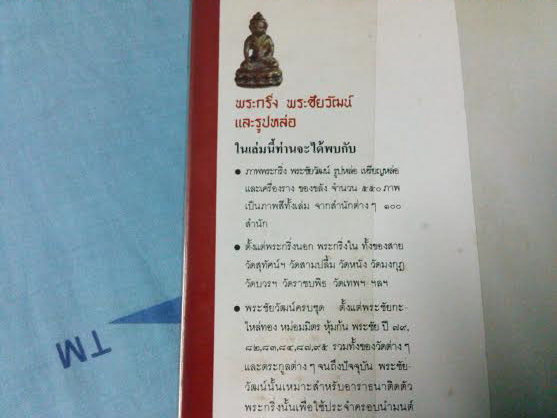 พระกริ่ง พระชัยวัฒน์
และรูปหล่อ
ในเล่มนี้ท่านจะได้พบกับ
● ภาพพระกริ่ง พระชัยวัฒน์ รูปหล่อ เหรียญหล่อ
และเครื่องราง ของขลัง จำนวน ๕๕๐ ภาพ
เป็นภาพสีทั้งเล่ม จากสำนักต่าง ๆ ๑๐๐
สำนัก
● ตั้งแต่พระกริ่งนอก พระกริ่งใน ทั้งของสาย
วัดสุทัศน์ฯ วัดสามปลื้ม วัดหนัง วัดมงกุฎ
วัดบวรฯ วัดราชบพิธ วัดเทพฯ ฯลฯ
● พระชัยวัฒน์ครบชุด ตั้งแต่พระชัยกะ-
ไหล่ทอง หม่อมมิตร หุ้มก้น พระชัย ปี ๗๙,
๘๒,๘๓,๘๔,๘๗,๙๕ รวมทั้งของวัดต่าง ๆ
และตระกูลต่าง ๆ จนถึงปัจจุบัน พระชัย-
วัฒน์นั้นเหมาะสำหรับอาราธนาติดตัว
พระกริ่งนั้นเพื่อใช้ประจำครอบน้ำมนต์
TM